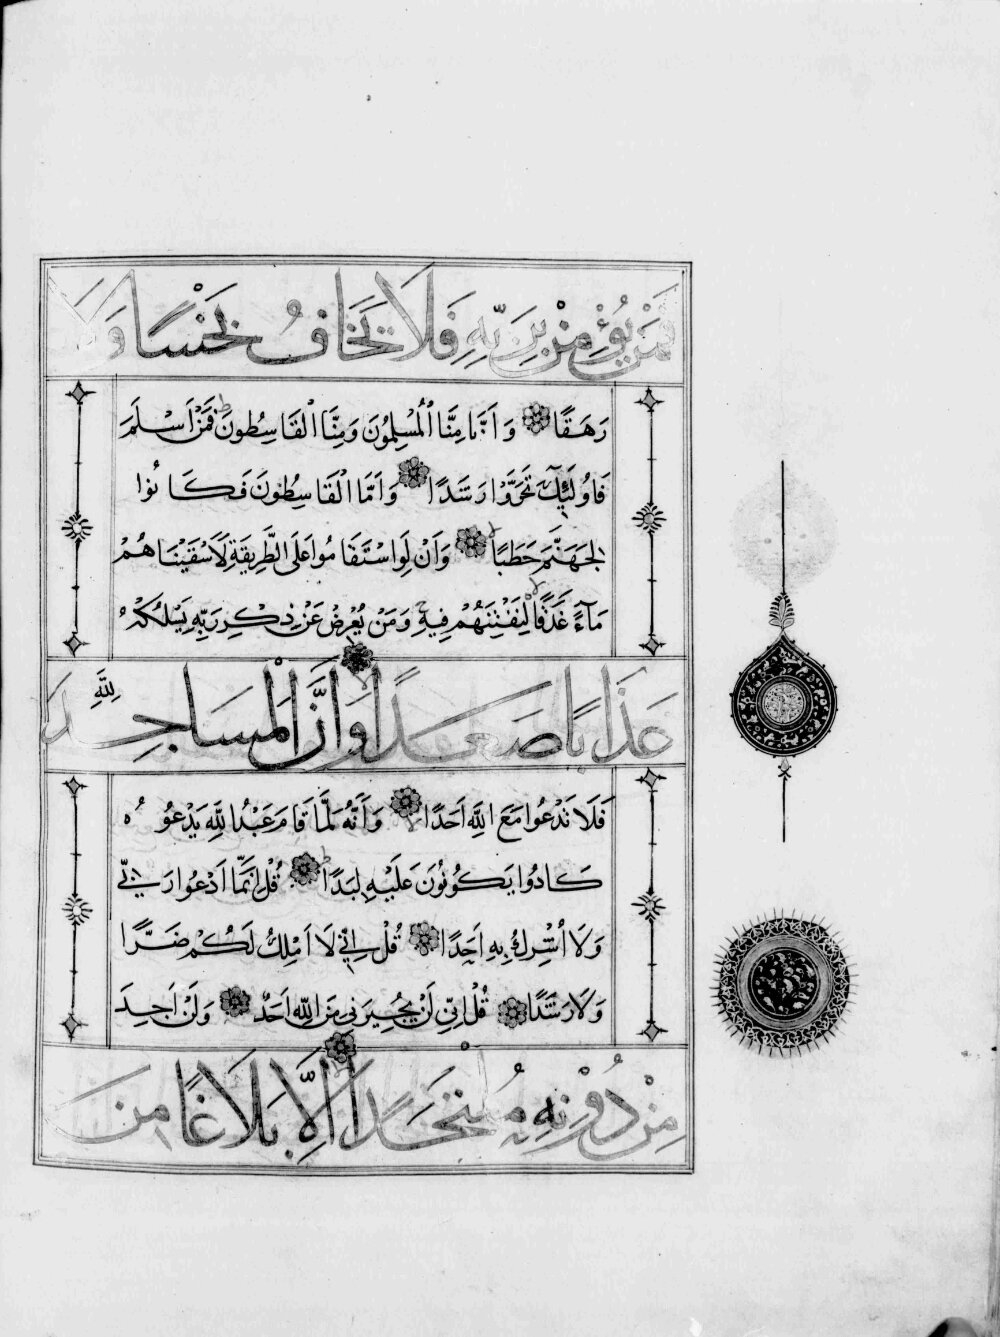 فَمَنْ يُؤْمِنْ بِرَبِّهِ فَلَا يَخَافُ بَخْسًا وَلَا
رَهَقًا وَأَنَّا مِنَّا الْمُسْلِمُونَ وَمِنَّا الْقَاسِطُونَ فَمَنْ أَسْلَمَ
فَأُولَٰئِكَ تَحَرَّوْا رَشَدًا وَأَمَّا الْقَاسِطُونَ فَكَانُوا
لِجَهَنَّمَ حَطَبًا وَأَنْ لَوِ اسْتَقَامُوا عَلَى الطَّرِيقَةِ لَأَسْقَيْنَاهُمْ
مَاءً غَدَقًا لِنَفْتِنَهُمْ فِيهِ وَمَنْ يُعْرِضْ عَنْ ذِكْرِ رَبِّهِ يَسْلُكْهُ
عَذَابًا صَعَدًا وَأَنَّ الْمَسَاجِدَ لِلَّهِ
فَلَا تَدْعُوا مَعَ اللَّهِ أَحَدًا وَأَنَّهُ لَمَّا قَامَ عَبْدُ اللَّهِ يَدْعُوهُ
كَادُوا يَكُونُونَ عَلَيْهِ لِبَدًا قُلْ إِنَّمَا أَدْعُوا رَبِّي
وَلَا أُشْرِكُ بِهِ أَحَدًا قُلْ إِنِّي لَا أَمْلِكُ لَكُمْ ضَرًّا
وَلَا رَشَدًا قُلْ إِنِّي لَنْ يُجِيرَنِي مِنَ اللَّهِ أَحَدٌ وَلَنْ أَجِدَ
مِنْ دُونِهِ مُلْتَحَدًا إِلَّا بَلَاغًا مِنَ